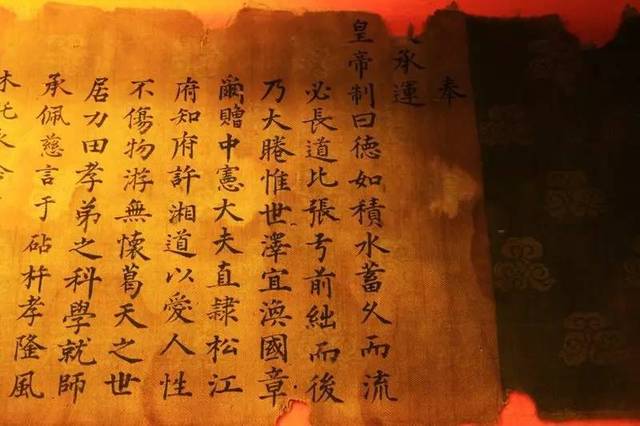 奉
承運
皇帝制曰德如積水蓄久而流
必長道比張弓前絀而後
乃大睠惟世澤宜渙國章
爾贈中憲大夫直隸松江
府知府許湘道以愛人性
不傷物游無懷葛天之世
居力田孝弟之科學就師
承佩慈言于砧杵孝隆風